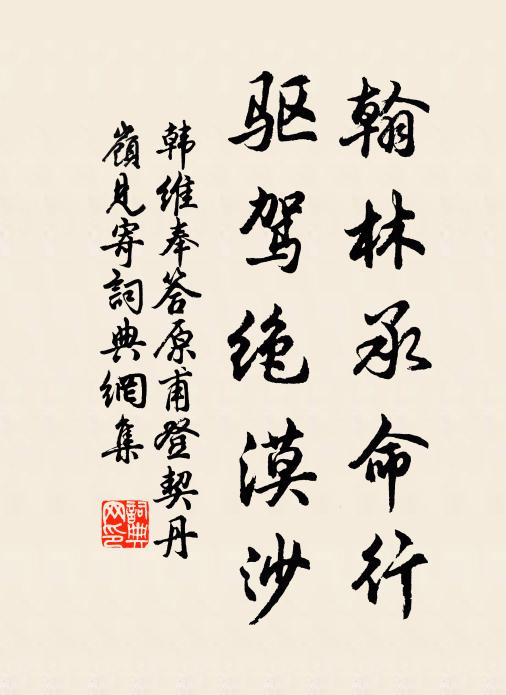 翰林承命行
驱驾绝漠沙
韩维奉答原甫登契丹
嶺見寄詞典網集
詞典网印